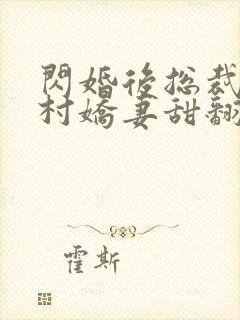 閃婚後總裁
村嬌妻甜翻
霍斯